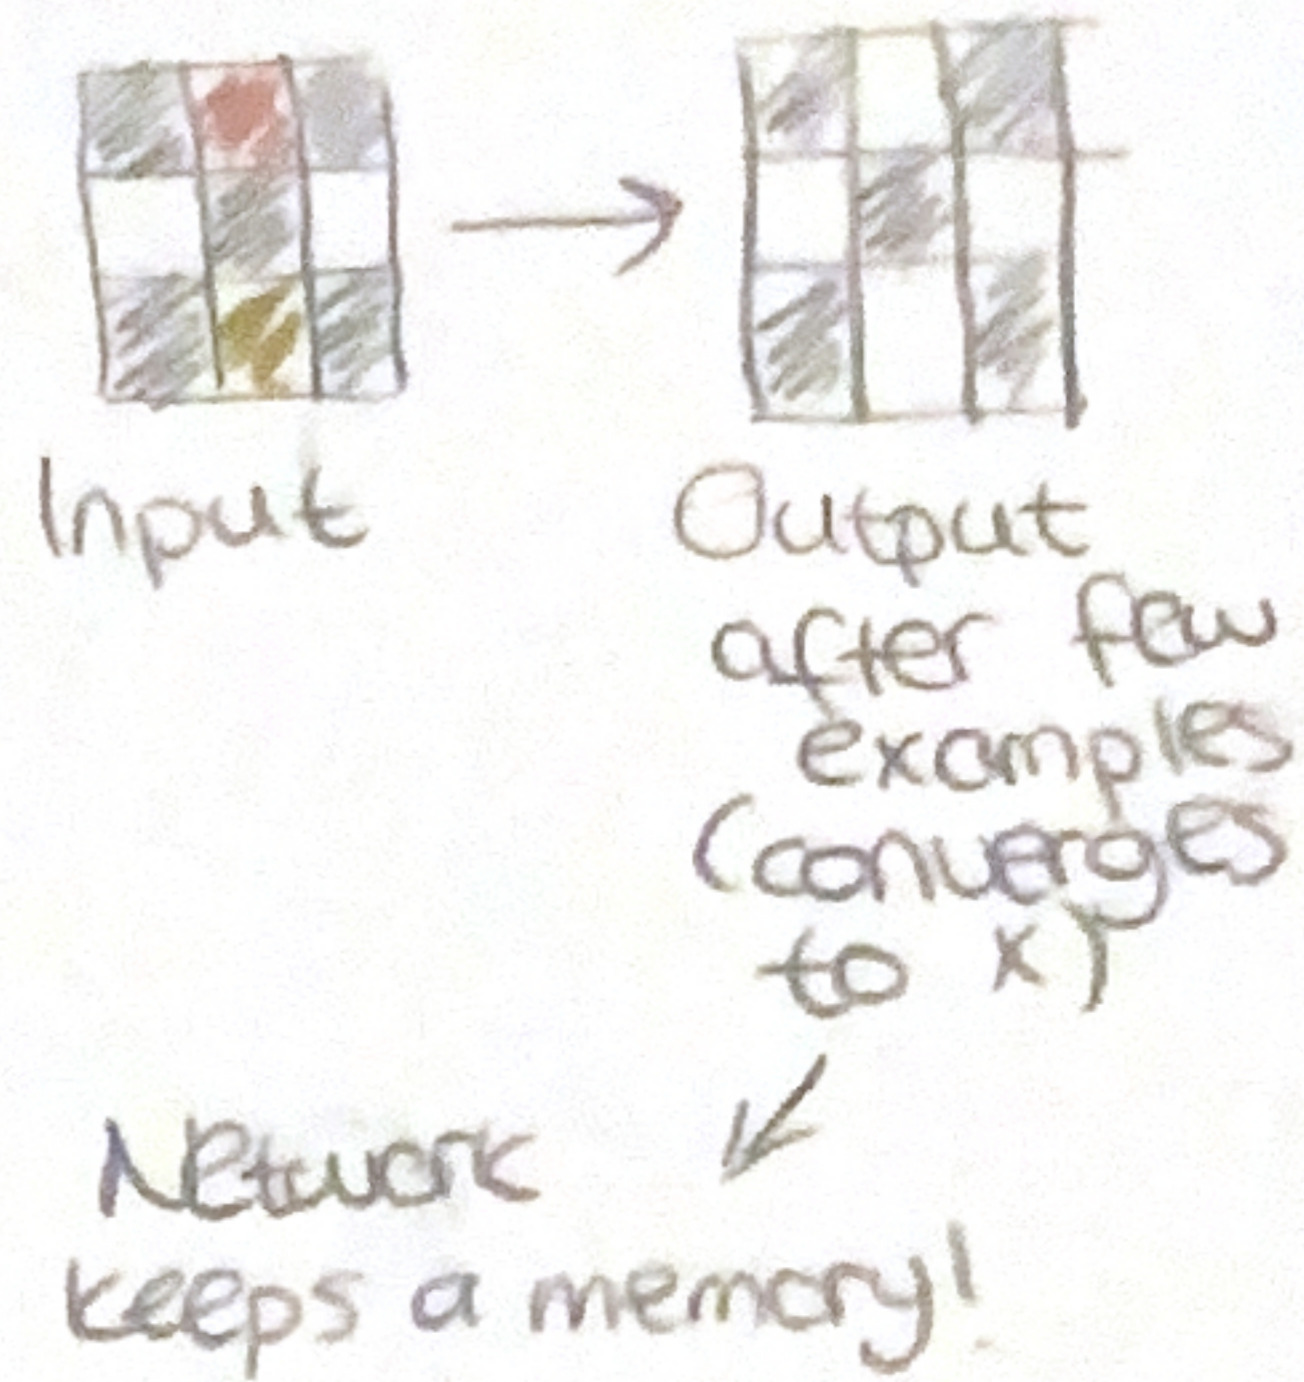 Input
Output
after few
examples
(converges
to x)
Network
keeps a memory!